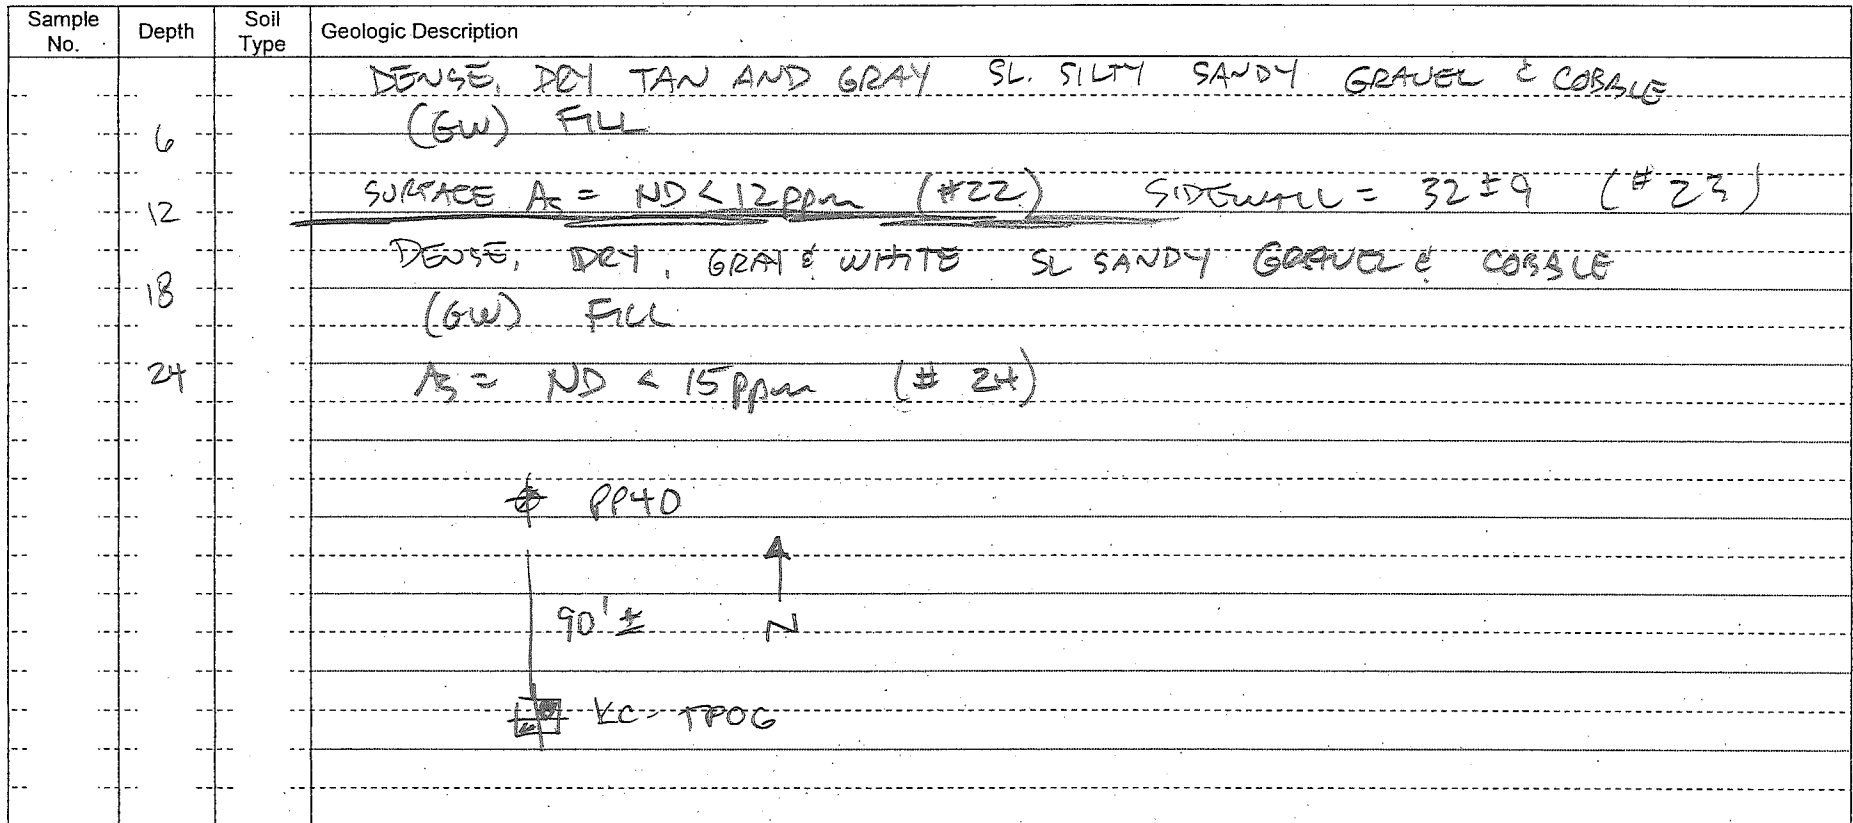 Sample No. Depth Soil Type Geologic Description
DENSE, DRY TAN AND GRAY SL. SILTY SANDY GRAVEL & COBBLE
6 (GW) FILL
SURFACE As = ND < 12 ppm (#22) SIDEWALL = 32 ± 9 (# 23)
12
DENSE, DRY, GRAY & WHITE SL SANDY GRAVEL & COBBLE
18
(GW) FILL
24 As = ND < 15 ppm (# 24)
PP40
90' ±
N
KC-TP06